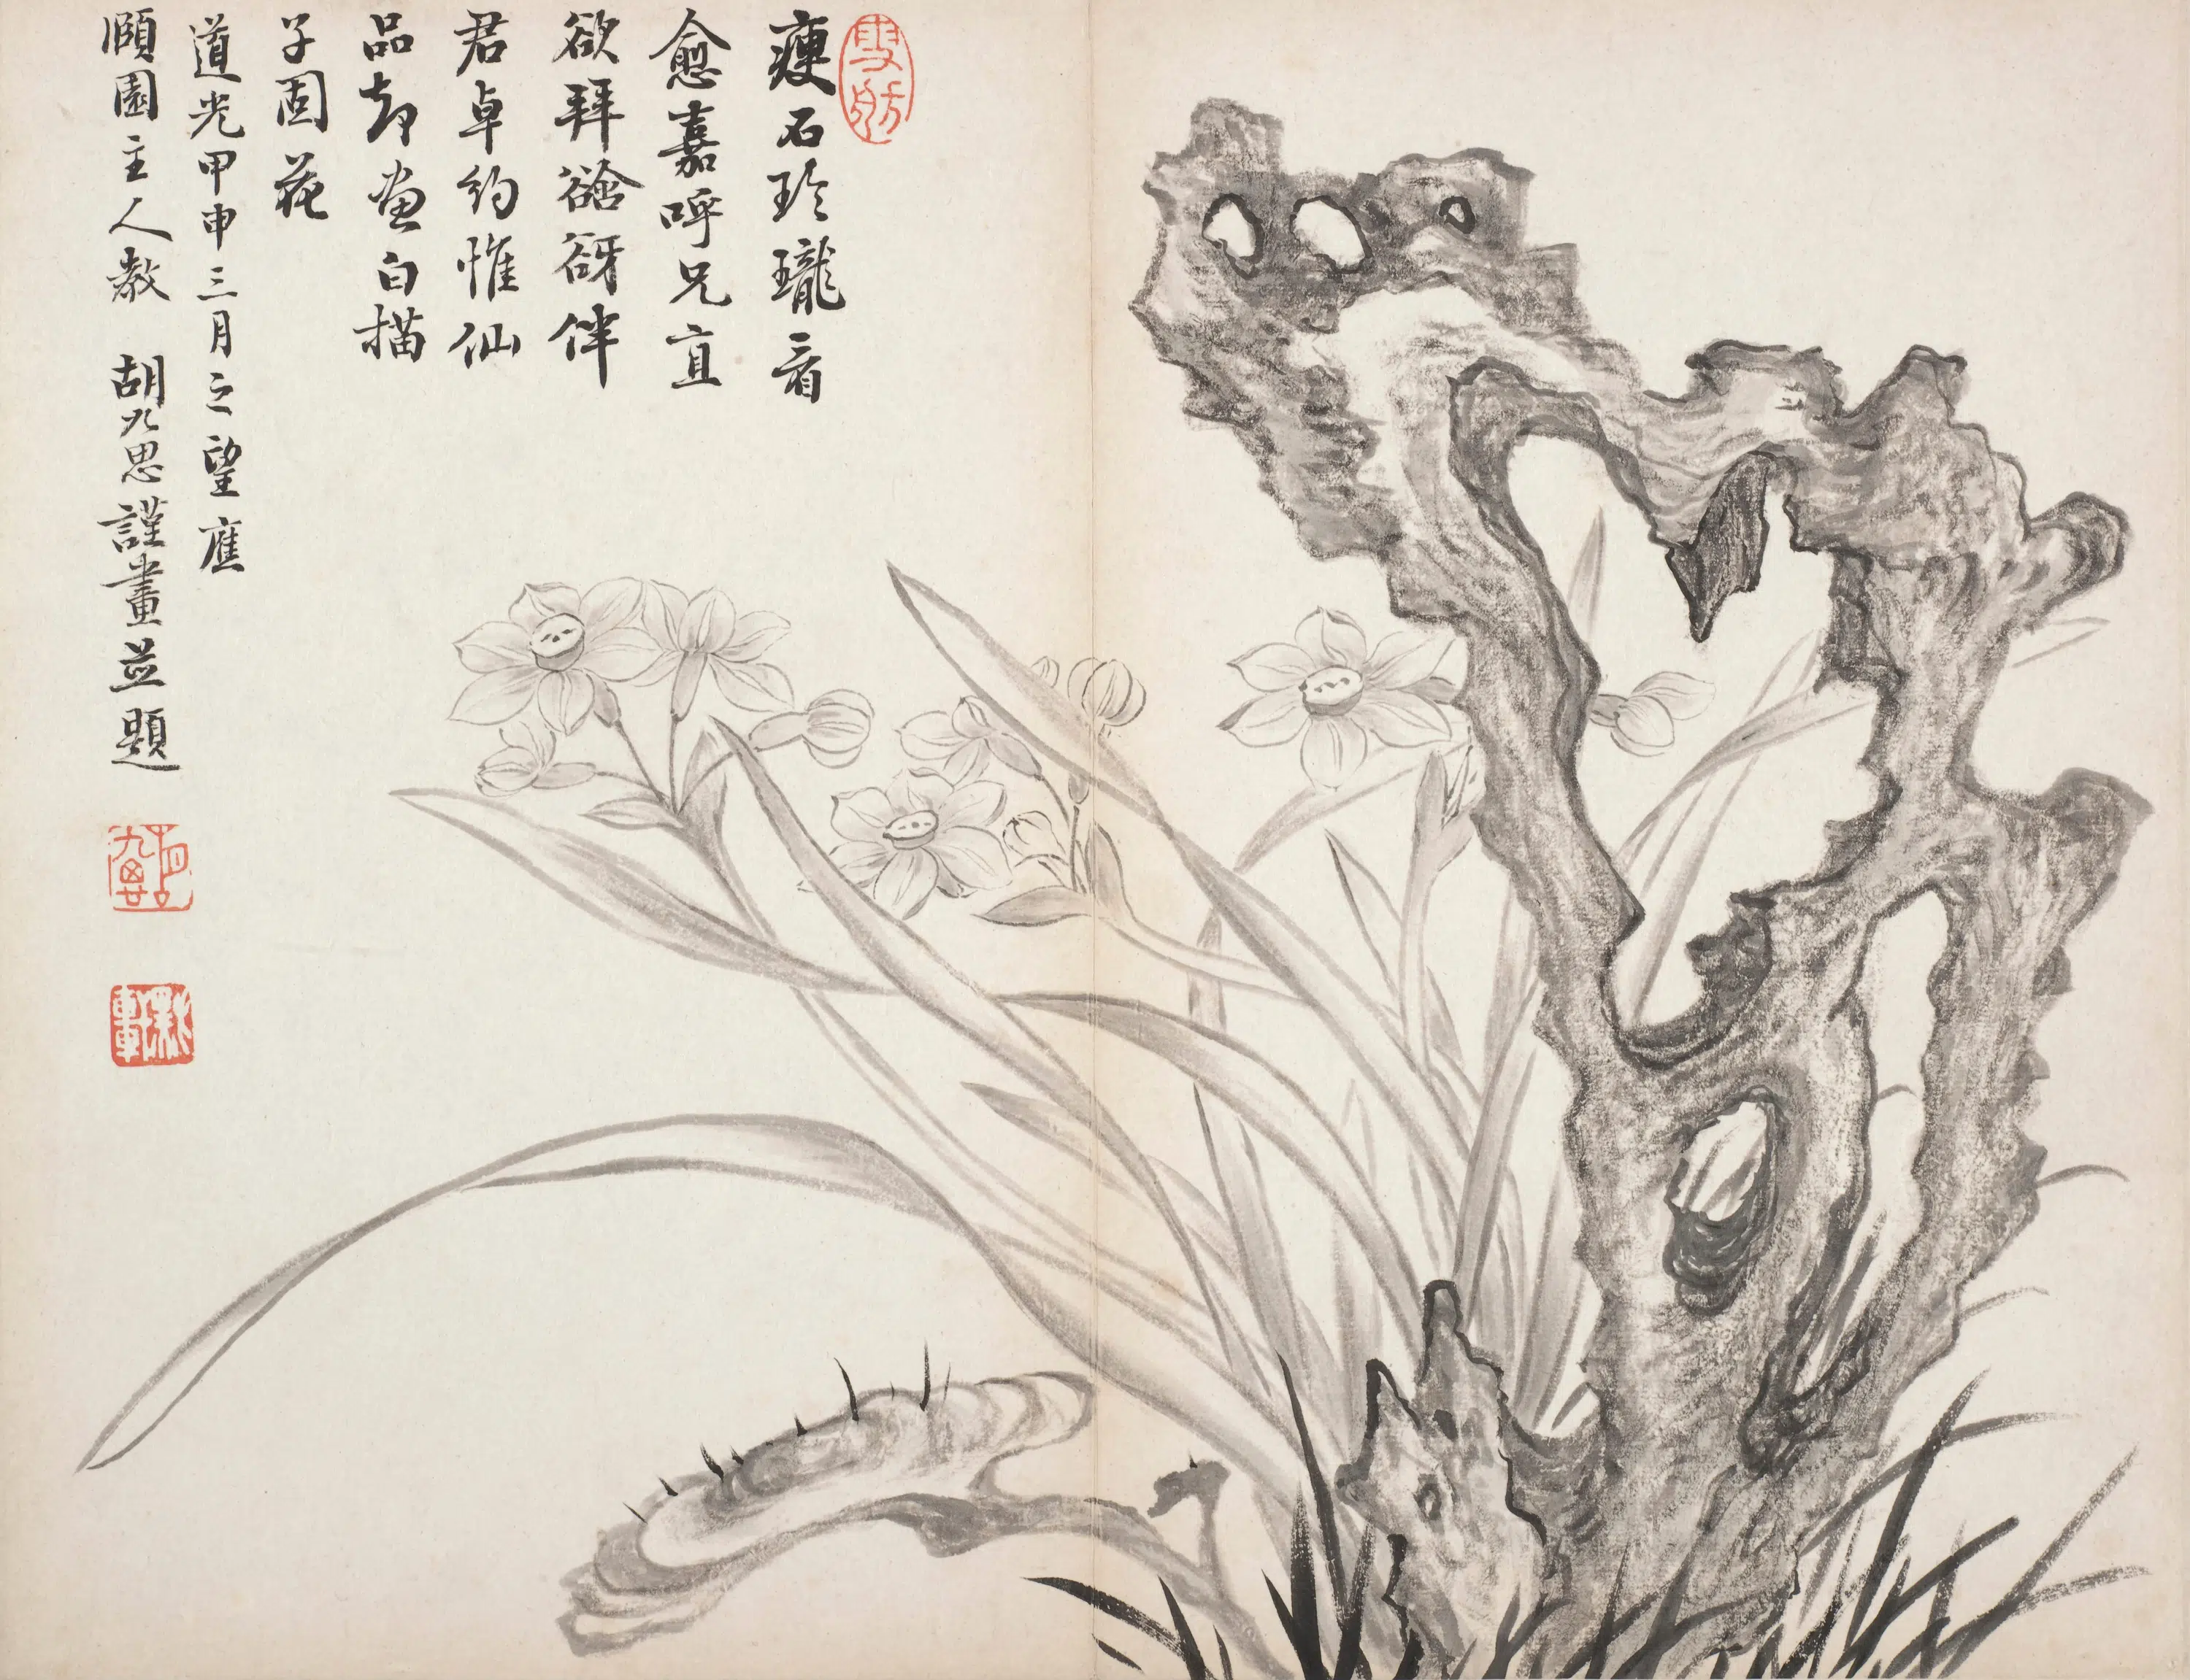 雪舫
瘦石玲瓏看
愈嘉呼兄直
欲拜谽谺伴
君卓約惟仙
品却畫白描
子固花
道光甲申三月之望應
頤園主人教 胡九思謹畫並題